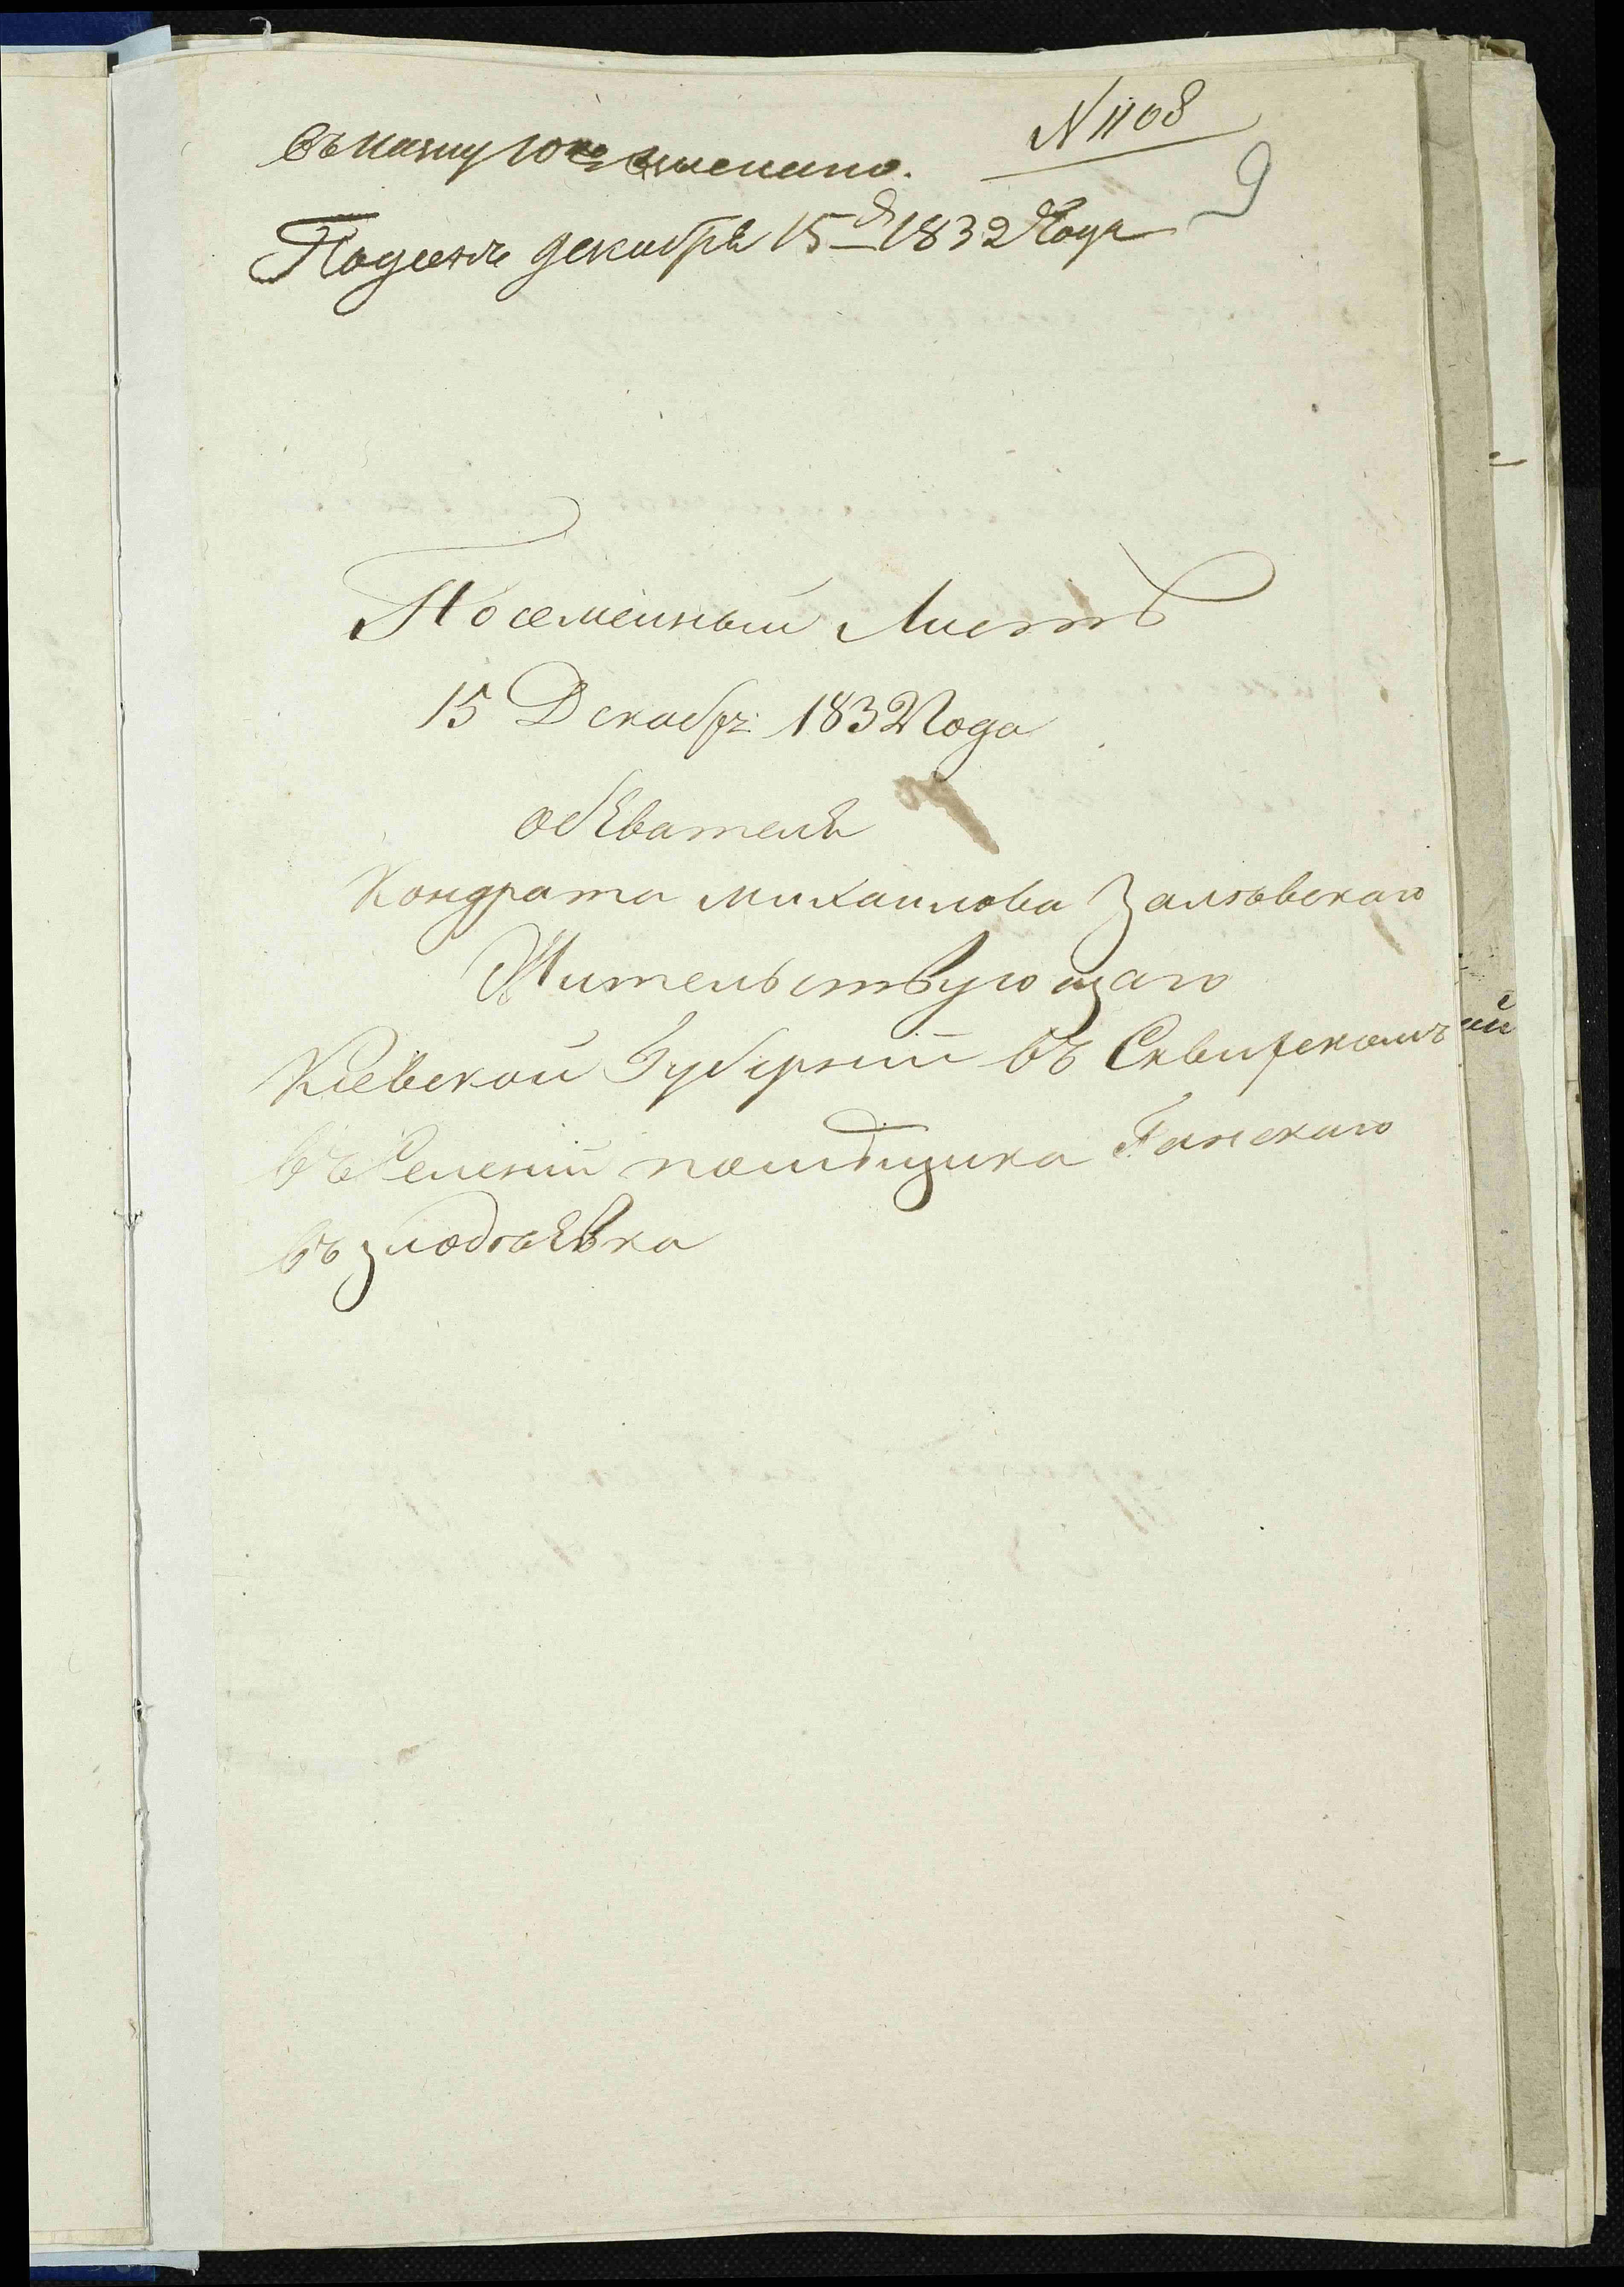 N 1108
въ книгу записано.
9
Поданъ декабря 15 д 1832 Года
Посемейный Листъ
15 Декабр: 1832 Года
обЕвателя
Кондрата михаилова Залѣвскаго
Жительствующаго
Кіевской Губерніи въ Сквирскомъ
въ Селеніи помѣщика Ганскаго
въ злодѣЕвка